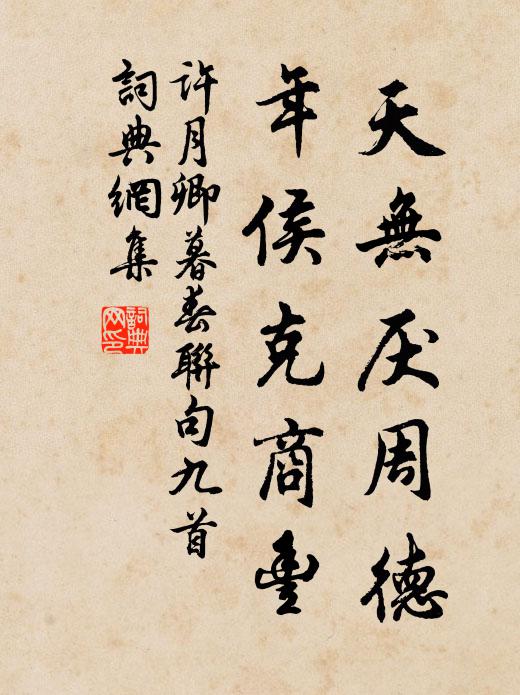 天無厌周德
年侯克商豊
许月卿暮春聯句九首
詞典網集
詞典
网印